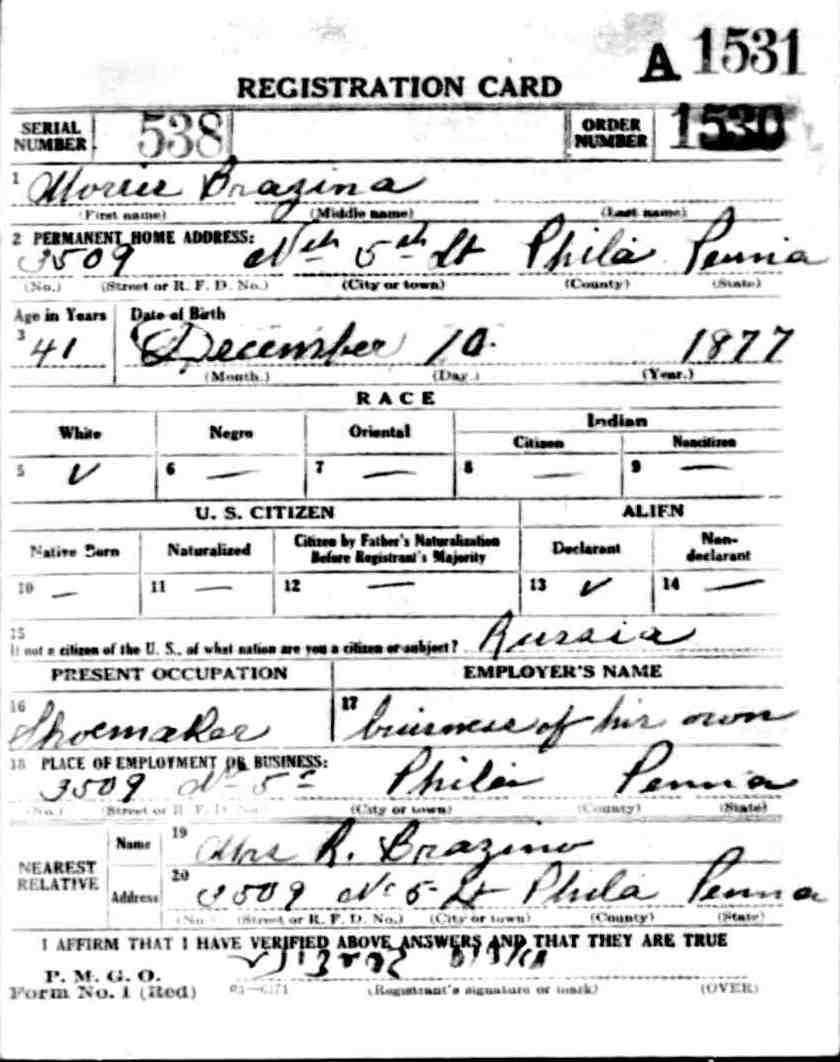 A 1531
REGISTRATION CARD
SERIAL NUMBER 538 ORDER NUMBER 1530
1 Morris Brazina
(First name) (Middle name) (Last name)
2 PERMANENT HOME ADDRESS:
3509 Nth 5th St Phila Penna
(No.) (Street or R. F. D. No.) (City or town) (County) (State)
Age in Years Date of Birth
3 41 4 December 10. 1877
(Month.) (Day.) (Year.)
RACE
White Negro Oriental Indian
Citizen Noncitizen
5 ✓ 6 — 7 — 8 — 9 —
U. S. CITIZEN ALIEN
Native Born Naturalized Citizen by Father's Naturalization Before Registrant's Majority Declarant Non-declarant
10 — 11 — 12 — 13 ✓ 14 —
15 If not a citizen of the U. S., of what nation are you a citizen or subject? Russia
PRESENT OCCUPATION EMPLOYER'S NAME
16 Shoemaker 17 buisness of his own
18 PLACE OF EMPLOYMENT OR BUSINESS:
3509 N 5 Phila Penna
(No.) (Street or R. F. D. No.) (City or town) (County) (State)
NEAREST RELATIVE Name 19 Mrs R. Brazino
Address 20 3509 N 5 St Phila Penna
(No.) (Street or R. F. D. No.) (City or town) (County) (State)
I AFFIRM THAT I HAVE VERIFIED ABOVE ANSWERS AND THAT THEY ARE TRUE
P. M. G. O.
Form No. 1 (Red) 03—6171 (Registrant's signature or mark) (OVER)